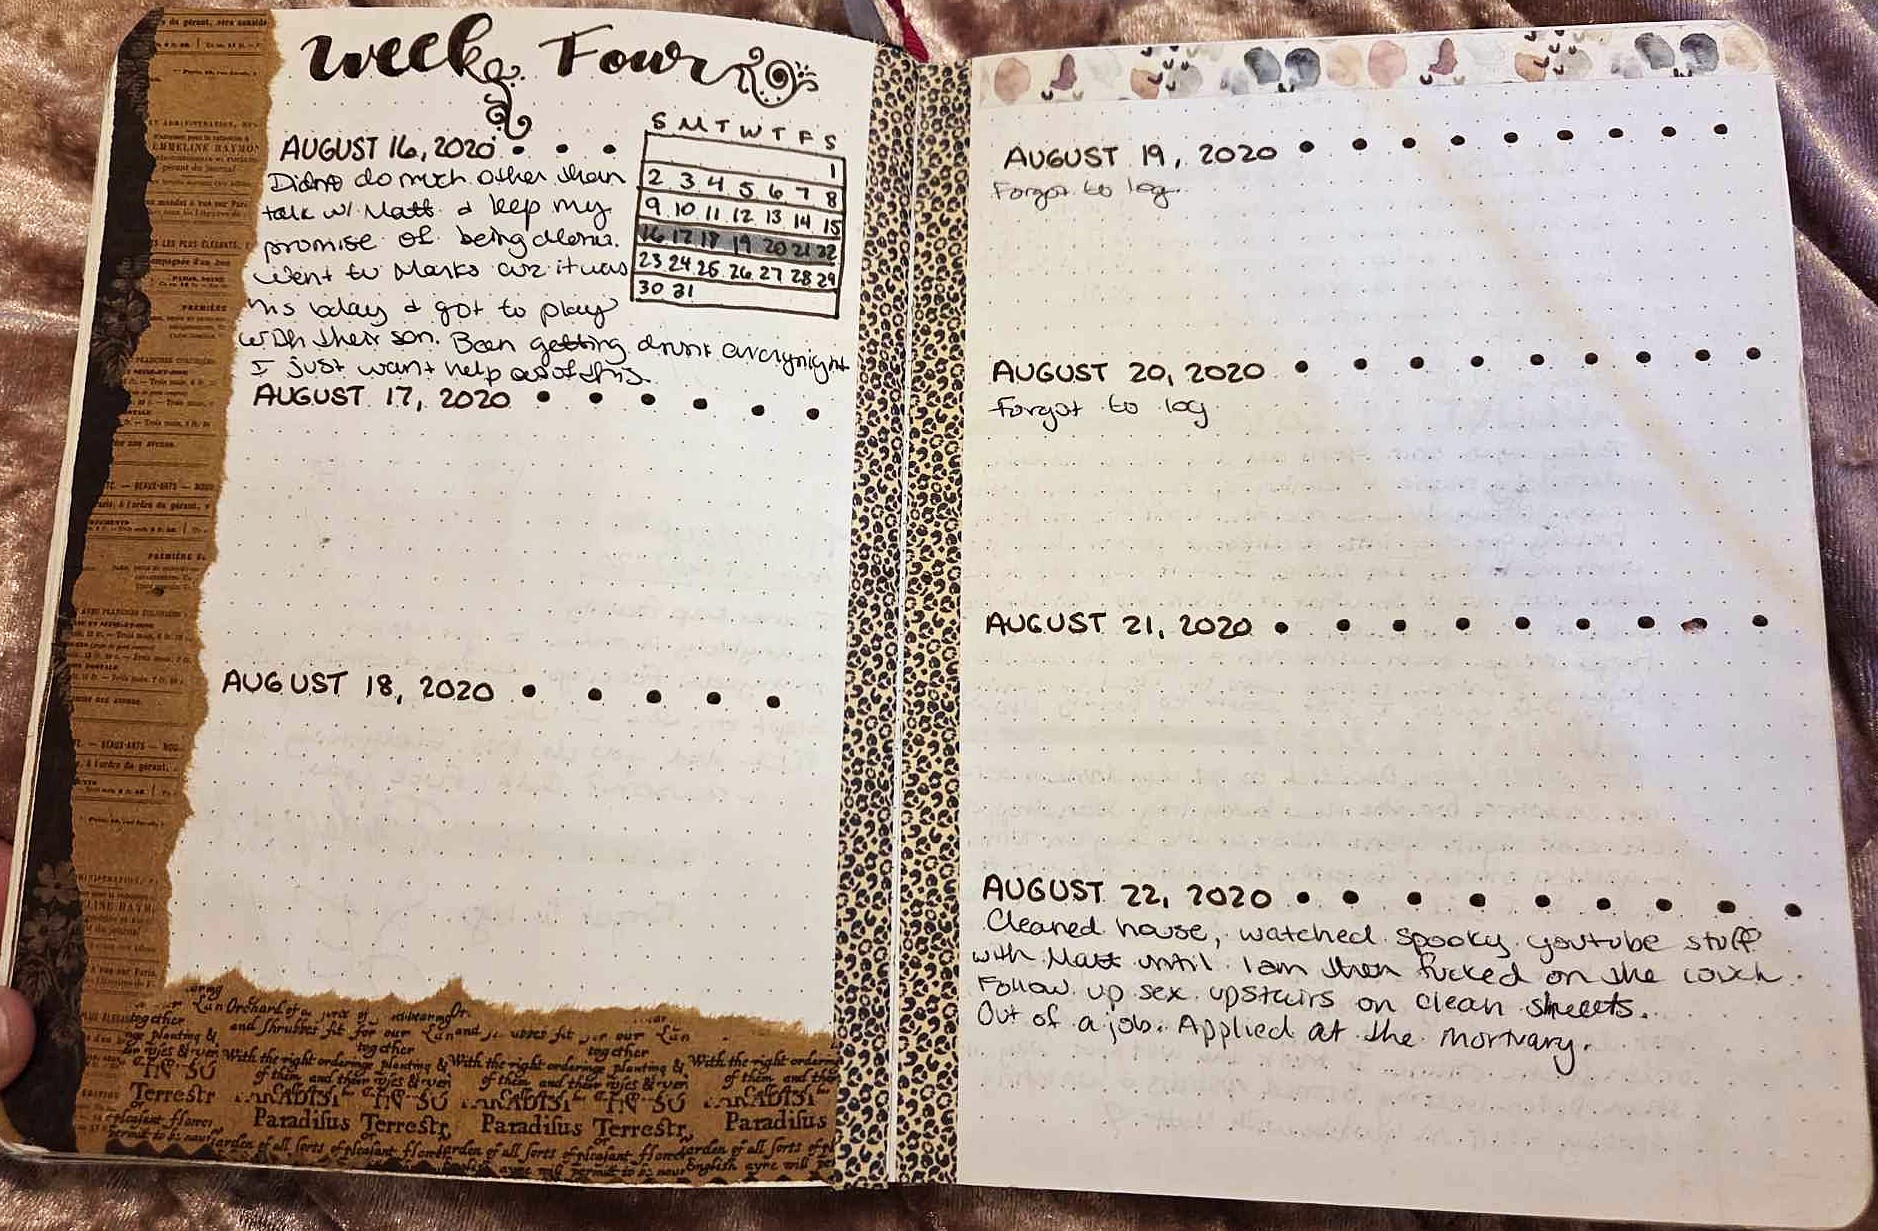 Week Four
AUGUST 16, 2020
Didn't do much other than
talk w/ Matt & keep my
promise of being alone.
Went to Marks cuz it was
his bday & got to play
with their son. Been getting drunk everynight
I just want help out of this.
S M T W T F S
1
2 3 4 5 6 7 8
9 10 11 12 13 14 15
16 17 18 19 20 21 22
23 24 25 26 27 28 29
30 31
AUGUST 17, 2020
AUGUST 18, 2020
together
and shrubbes fit for our
together
With the right ordering planting &
of them and their vses & ver
Terrestr
Paradisus Terrestr
Paradisus Terrestr
Paradisus
garden of all sorts of pleasant flow
English ayre will permit to be
AUGUST 19, 2020
Forgot to log.
AUGUST 20, 2020
Forgot to log
AUGUST 21, 2020
AUGUST 22, 2020
Cleaned house, watched spooky youtube stuff
with Matt until 1am then fucked on the couch.
Follow up sex upstairs on clean sheets.
Out of a job. Applied at the mortuary.